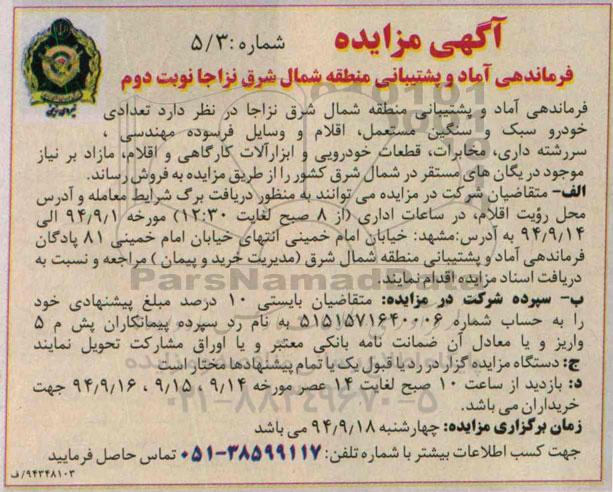 آگهی مزایده شماره: ۵/۳
فرماندهی آماد و پشتیبانی منطقه شمال شرق نزاجا نوبت دوم
فرماندهی آماد و پشتیبانی منطقه شمال شرق نزاجا در نظر دارد تعدادی
خودرو سبک و سنگین مستعمل، اقلام و وسایل فرسوده مهندسی ،
سررشته داری، مخابرات، قطعات خودرویی و ابزارآلات کارگاهی و اقلام، مازاد بر نیاز
موجود در یگان های مستقر در شمال شرق کشور را از طریق مزایده به فروش رساند.
الف- متقاضیان شرکت در مزایده می توانند به منظور دریافت برگ شرایط معامله و آدرس
محل رؤیت اقلام، در ساعات اداری (از ۸ صبح لغایت ۱۲:۳۰) مورخه ۹۴/۹/۱ الی
۹۴/۹/۱۴ به آدرس:مشهد: خیابان امام خمینی انتهای خیابان امام خمینی ۸۱ پادگان
فرماندهی آماد و پشتیبانی منطقه شمال شرق (مدیریت خرید و پیمان ) مراجعه و نسبت به
دریافت اسناد مزایده اقدام نمایند.
ب- سپرده شرکت در مزایده: متقاضیان بایستی ۱۰ درصد مبلغ پیشنهادی خود
را به حساب شماره ۵۱۵۱۵۷۱۶۴۰۰۰۶ به نام رد سپرده پیمانکاران پش م ۵
واریز و یا معادل آن ضمانت نامه بانکی معتبر و یا اوراق مشارکت تحویل نمایند
ج: دستگاه مزایده گزار در رد یا قبول یک یا تمام پیشنهادها مختار است
د: بازدید از ساعت ۱۰ صبح لغایت ۱۴ عصر مورخه ۹/۱۴ ، ۹/۱۵ ، ۹۴/۹/۱۶ جهت
خریداران می باشد.
زمان برگزاری مزایده: چهارشنبه ۹۴/۹/۱۸ می باشد
جهت کسب اطلاعات بیشتر با شماره تلفن: ۳۸۵۹۹۱۱۷-۰۵۱ تماس حاصل فرمایید
۹۴۳۴۸۱۰۳/ف
ParsNamadData
۰۲۱-۸۸۳۴۹۶۷۰-۵